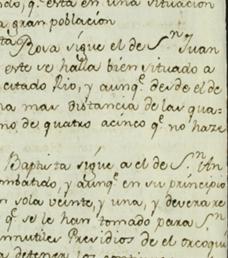 do, q.ᵉ está en una situacion
a gran poblacion
Rova sigue el de S.ⁿ Juan
este se halla bien situado a
cutado Rio, y aunq.ᵉ desde el de
na mas distancia de las qua-
no de quatro acinco q.ᵉ no haze
Baptista sigue a el de S.ⁿ An
ombatido, y aunq.ᵉ en su principio
n sola veinte, y una, y devera re
q.ᵉ se le han tomado para S.ⁿ
nnutiles Presidios de el
a detener los